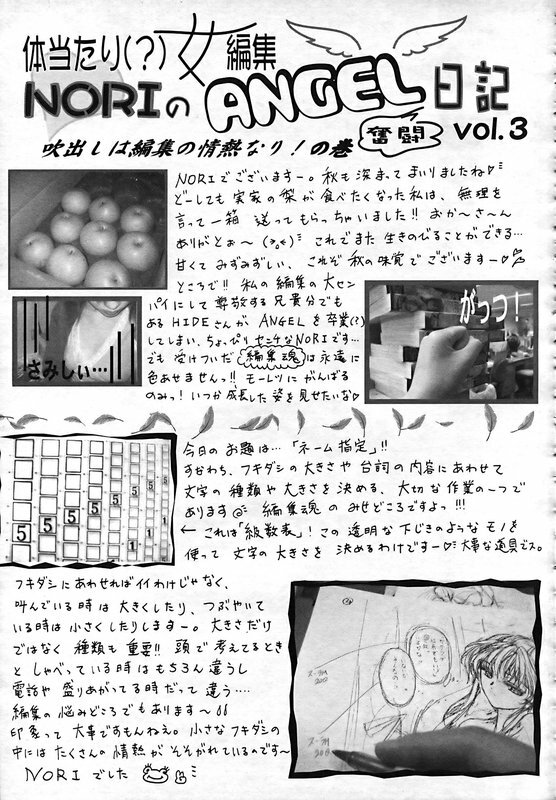 体当たり(？)女編集
NORIのANGEL日記
奮闘 vol.3
吹出しは編集の情熱なり！の巻
NORIでございますー。秋も深まってまいりましたね♡
どーしても実家の梨が食べたくなった私は、無理を
言って一箱 送ってもらっちゃいました!! おか～さ～ん
ありがとぉ～ これでまた 生きのびることができる…
甘くて みずみずしい、これぞ 秋の味覚で ございますー♡
ところで!! 私の編集の大セン
パイにして尊敬する兄貴分でも
ある HIDEさんが ANGELを卒業(？)
してしまい、ちょっぴりセンチなNORIです…
でも 受けついだ 編集魂 は永遠に
色あせませんっ!! モーレツにがんばる
のみっ！いつか成長した姿を見せたいな♡
さみしぃ…
がっつ！
今日の お題は…「ネーム指定」!!
すなわち、フキダシの大きさや 台詞の内容にあわせて
文字の種類や大きさを決める、大切な作業の一つで
あります 編集魂の みせどころですよっ!!!
← これは「級数表」！この透明な下じきのようなモノを
使って 文字の大きさを 決めるわけですー♡大事な道具でス。
5
5
5
5
5
5
5
1
1
1
フキダシにあわせればイイわけじゃなく、
叫んでいる時は 大きくしたり、つぶやいて
いる時は小さくしたりしますー。大きさだけ
ではなく 種類も 重要!! 頭で考えてるとき
と しゃべっている時はもちろん違うし
電話や 盛りあがってる時だって 違う…
編集の悩みどころでもあります～
印象って 大事ですもんねえ。小さなフキダシの
中には たくさんの 情熱が そそがれているのです～
NORI でした